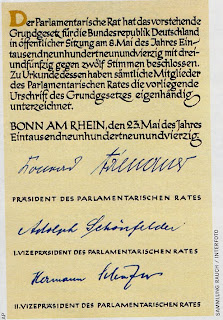 Der Parlamentarische Rat hat das vorstehende
Grundgesetz für die Bundesrepublik Deutschland
in öffentlicher Sitzung am 8. Mai des Jahres Ein-
tausendneunhundertneunundvierzig mit drei-
undfünfzig gegen zwölf Stimmen beschlossen.
Zu Urkunde dessen haben sämtliche Mitglieder
des Parlamentarischen Rates die vorliegende
Urschrift des Grundgesetzes eigenhändig
unterzeichnet.
BONN AM RHEIN, den 23. Mai des Jahres
Eintausendneunhundertneunundvierzig:
Konrad Adenauer
PRÄSIDENT DES PARLAMENTARISCHEN RATES
Adolph Schönfelder
I. VIZEPRÄSIDENT DES PARLAMENTARISCHEN RATES
Hermann Schäfer
II. VIZEPRÄSIDENT DES PARLAMENTARISCHEN RATES
AP
SAMMLUNG RAUCH / INTERFOTO